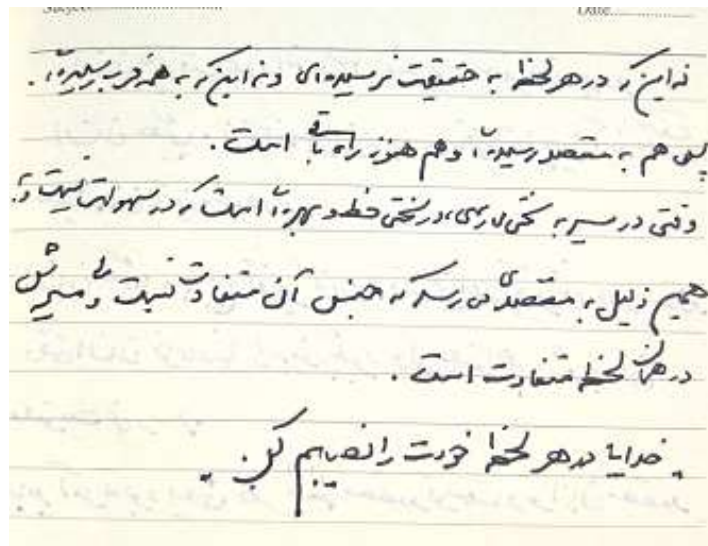 Subject.......... Date..........
نه این که در هر لحظه به حقیقت نرسیده‌ای و نه این که به همه قرب رسیده‌ای.
پس هم به مقصد رسیده‌ای و هم هنوز راه باقی است.
وقتی در مسیر به سختی می‌رسی، در سختی حظ و بهره‌ای است که در سهولت نیست و به
همین دلیل به مقصدی می‌رسد که جنس آن متفاوت نیست ولی مسیرش
در همان لحظه متفاوت است.
خدایا در هر لحظه خودت را نصیبم کن.